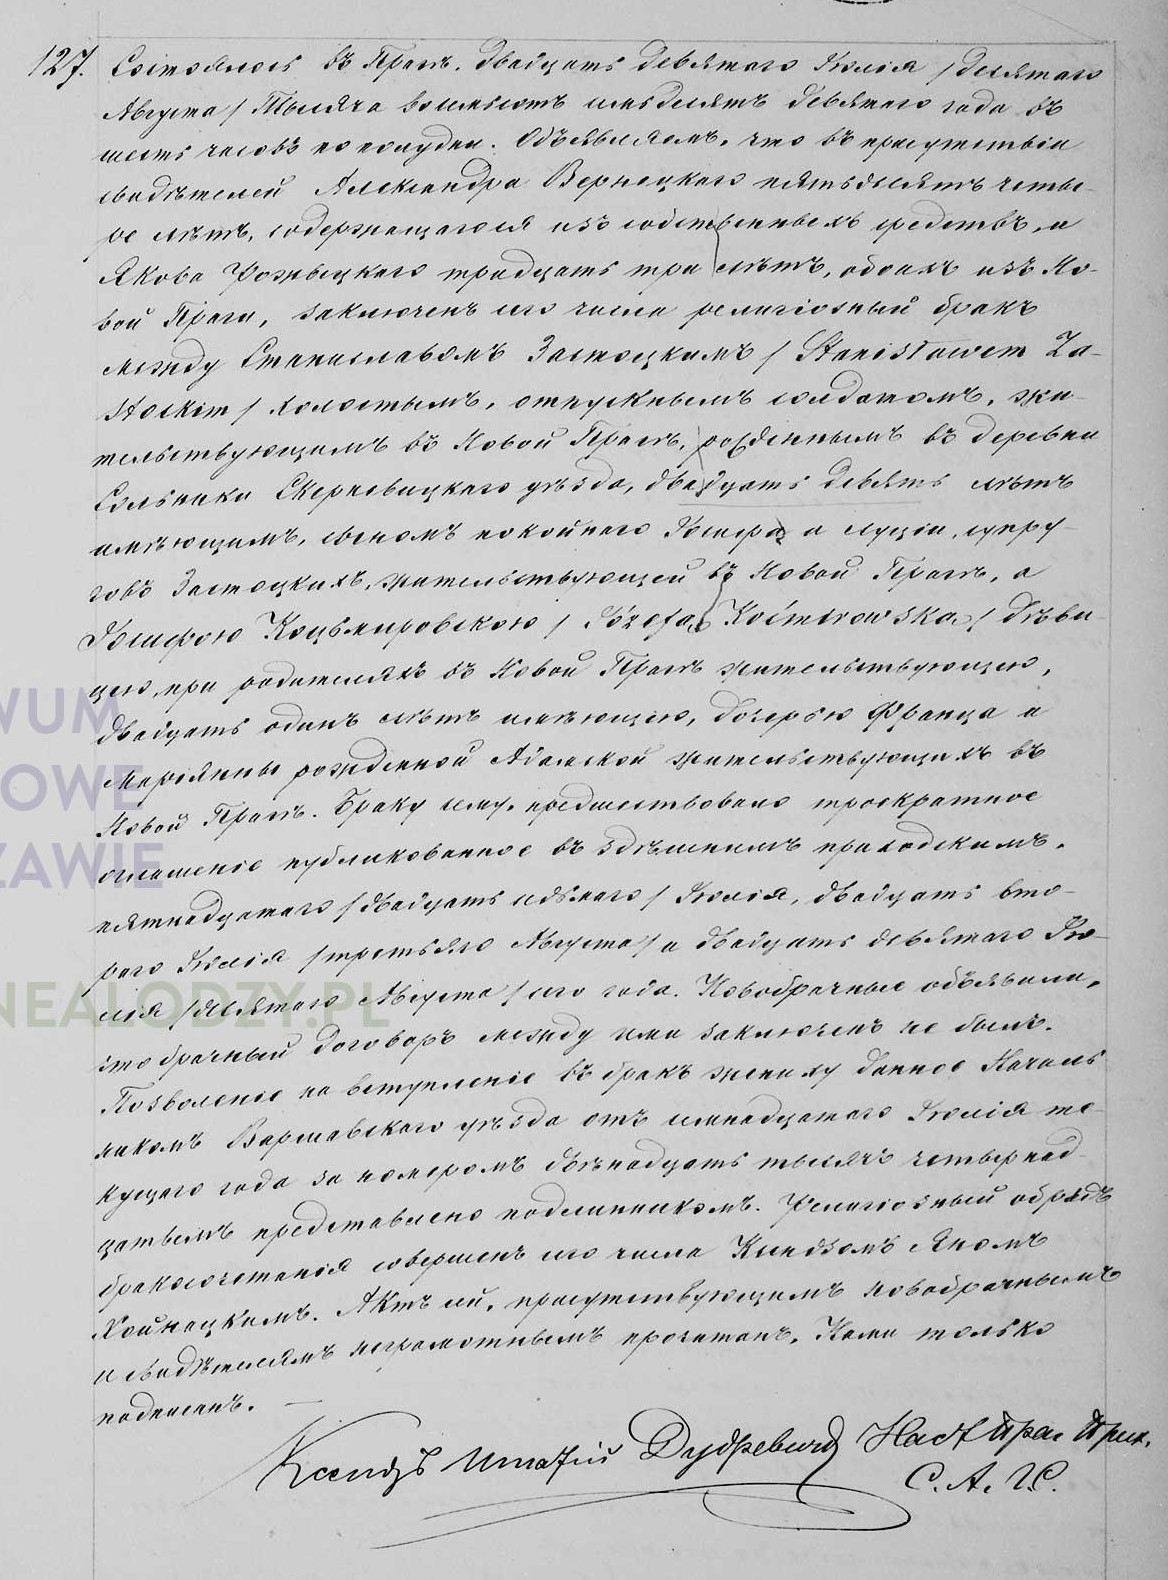 127. Состоялось въ Прагѣ. двадцать девятаго Іюлія /десятаго
Августа/ Тысяча восемьсотъ семьдесятъ девятаго года въ
шесть часовъ по полудни. Объявляемъ, что въ присутствіи
свидѣтелей Александра Вернецкаго пятьдесятъ четы-
ре лѣтъ, содержащагося изъ собственныхъ средствъ, и
Якова тридцать три лѣтъ, обоихъ изъ Но-
вой Праги, заключенъ сего числа религіозный бракъ
между Станиславомъ Застоцкимъ / Stanisławem Za-
stockim / холостымъ, отпускнымъ солдатомъ, жи-
тельствующимъ въ Новой Прагѣ, рожденнымъ въ деревни
Скерневицкаго уѣзда, двадцать девять лѣтъ
имѣющимъ, сыномъ покойнаго Іосифа и Луціи, супру-
говъ Застоцкихъ, жительствующей въ Новой Прагѣ, и
Іосифою Коцьмировскою / Józefą Koćmirowską / дѣви-
цею, при родителяхъ въ Новой Прагѣ жительствующею,
двадцать одинъ лѣтъ имѣющею, дочерью Франца и
Маріянны рожденной жительствующихъ въ
Новой Прагѣ. Браку сему, предшествовало троекратное
оглашеніе публикованное въ здѣшнимъ приходскимъ,
пятнадцатаго /двадцать седьмаго/ Іюлія, двадцать вто-
раго Іюлія /третьяго Августа/ и двадцать девятаго Ію-
лія /десятаго Августа/ сего года. Новобрачные объявили,
что брачный договоръ между ими заключенъ не былъ.
Позволеніе на вступленіе въ бракъ жениху данное Началь
никомъ Варшавскаго уѣзда отъ семнадцатаго Іюлія те-
кущаго года за номеромъ двѣнадцать тысячъ четырнад-
цатымъ представлено подлинникомъ. Религіозный обрядъ
бракосочетанія совершенъ сего числа Ксендзомъ Яномъ
Хойнацкимъ. Актъ сей, присутствующимъ новобрачнымъ
и свидѣтелямъ неграмотнымъ прочитанъ, Нами только
подписанъ. —
Ксендзъ Игнатій Дудревичъ Наст. Праг. Прих.
С. А. Г. С.
WUM
OWE
ZAWIE
NEALODZY.PL